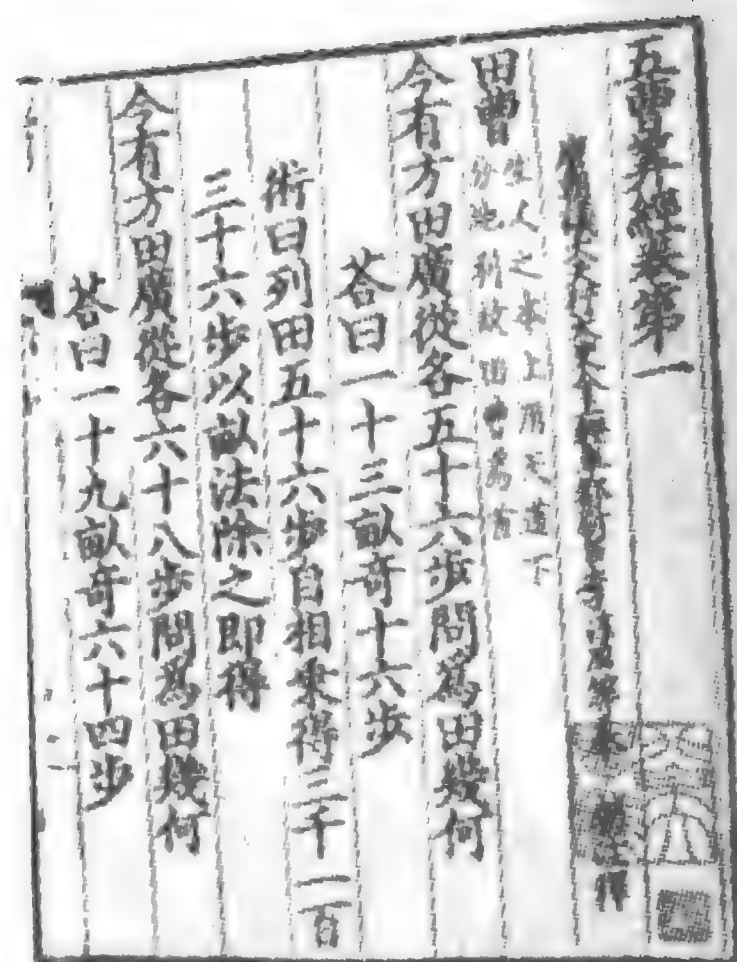 五曹筭經卷第一
田曹 生人之本上用天道下
分地利故田曹為首
今有方田廣從各五十六步問爲田幾何
荅曰一十三畝奇十六步
術曰列田五十六步自相乘得三千一百
三十六步以畝法除之即得
今有方田廣從各六十八步問爲田幾何
荅曰一十九畝奇六十四步